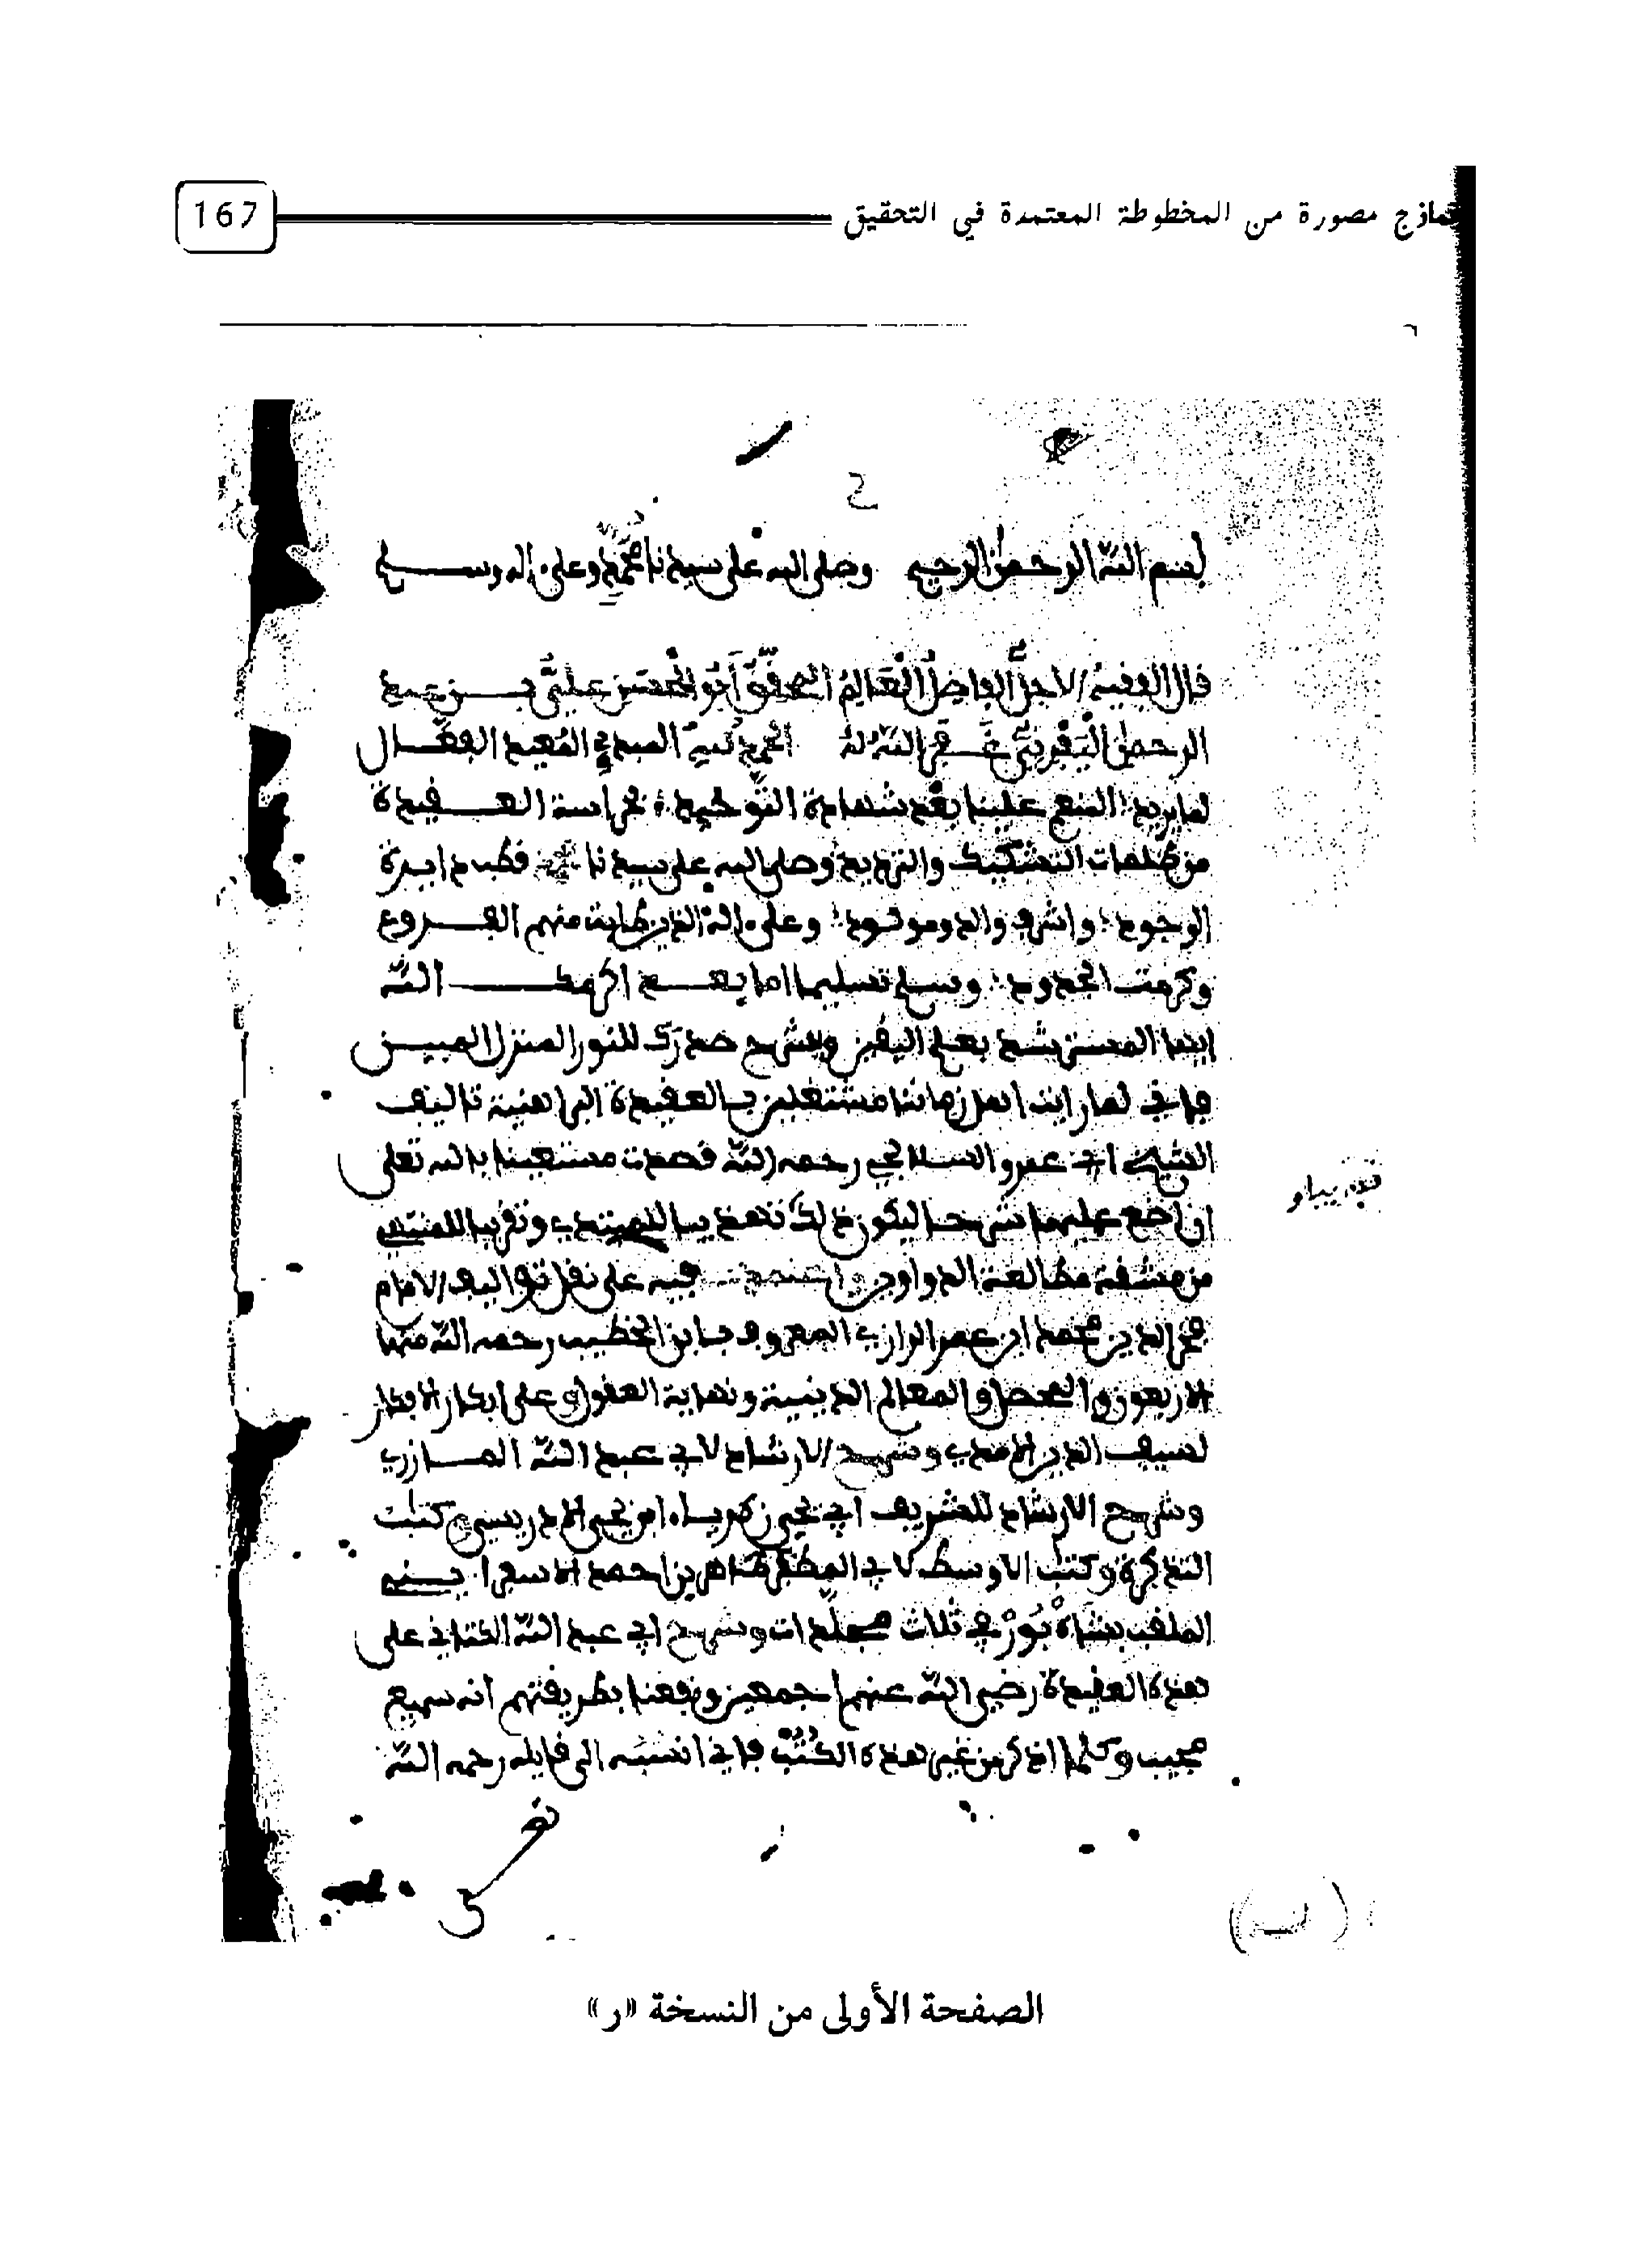 نماذج مصورة من المخطوطة المعتمدة في التحقيق
167
بسم الله الرحمن الرحيم وصلى الله على سيدنا محمد وعلى اله وسلم
قال الفقيه الاجل الفاضل العالم المحقق أبو الحسن علي بن عبد
الرحمن اليفرني غفر الله له الحمد لله المبدي المعيد الفعال
لما يريد المنعم علينا بعد شهادة التوحيد بحراسة العقيدة
من ظلمات التشكيك والترديد وصلى الله على سيدنا قطب دايرة
الوجود واشرف والد ومولود وعلى اله الذين طابت منهم الفروع
وكرمت الجدود وسلم تسليما اما بعد اكرمك الله
ايها المسترشد بعلم اليقين وشرح صدرك للنور المنزل المبين
فاني لما رايت اهل زماننا مشتغلين بالعقيدة البرهانية تاليف
الشيخ ابي عمرو السلالجي رحمه الله قصدت مستعينا بالله تعلى
ان اضع عليها شرحا ليكون ذلك تهذيبا للمبتدي وتقريبا للمنتهي
من مشقة مطالعة الدواوين فيه على نقل تواليف الامام
فخر الدين محمد ابن عمر الرازي المعروف بابن الخطيب رحمه الله منها
الاربعون والمحصل والمعالم الدينية ونهاية العقول وعلى ابكار الافكار
لسيف الدين الامدي وشرح الارشاد لابي عبد الله المازري
وشرح الارشاد للشريف ابي يحيى زكرياء ابن يحيى الادريسي وكتاب
التذكرة وكتب الاوسط لابي المظفر طاهر بن احمد الاسفرايني
الملقب بشاه بور في ثلاث مجلدات وشرح ابي عبد الله الكتاني على
هذه العقيدة رضي الله عنهم اجمعين ونفعنا بطريقتهم انه سميع
مجيب وكلما اذكر من غير هذه الكتب فاني انسبه الى قايله رحمه الله
الصفحة الأولى من النسخة «ر»